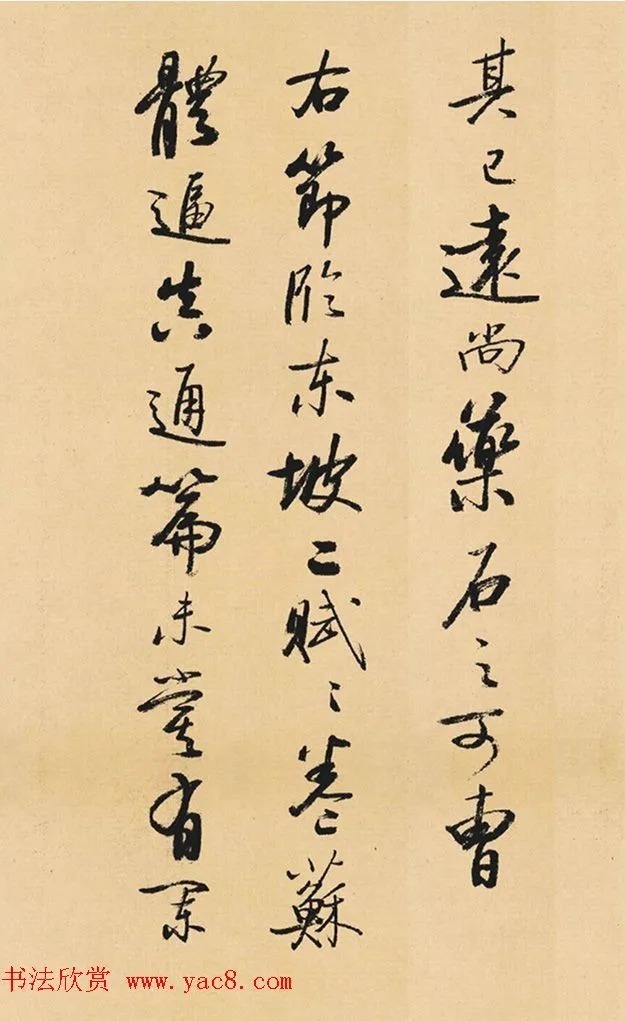 其已遠尚藥石之可曹
右節臨東坡二賦〻卷蘇
體逼真通篇未嘗有
书法欣赏 www.yac8.com